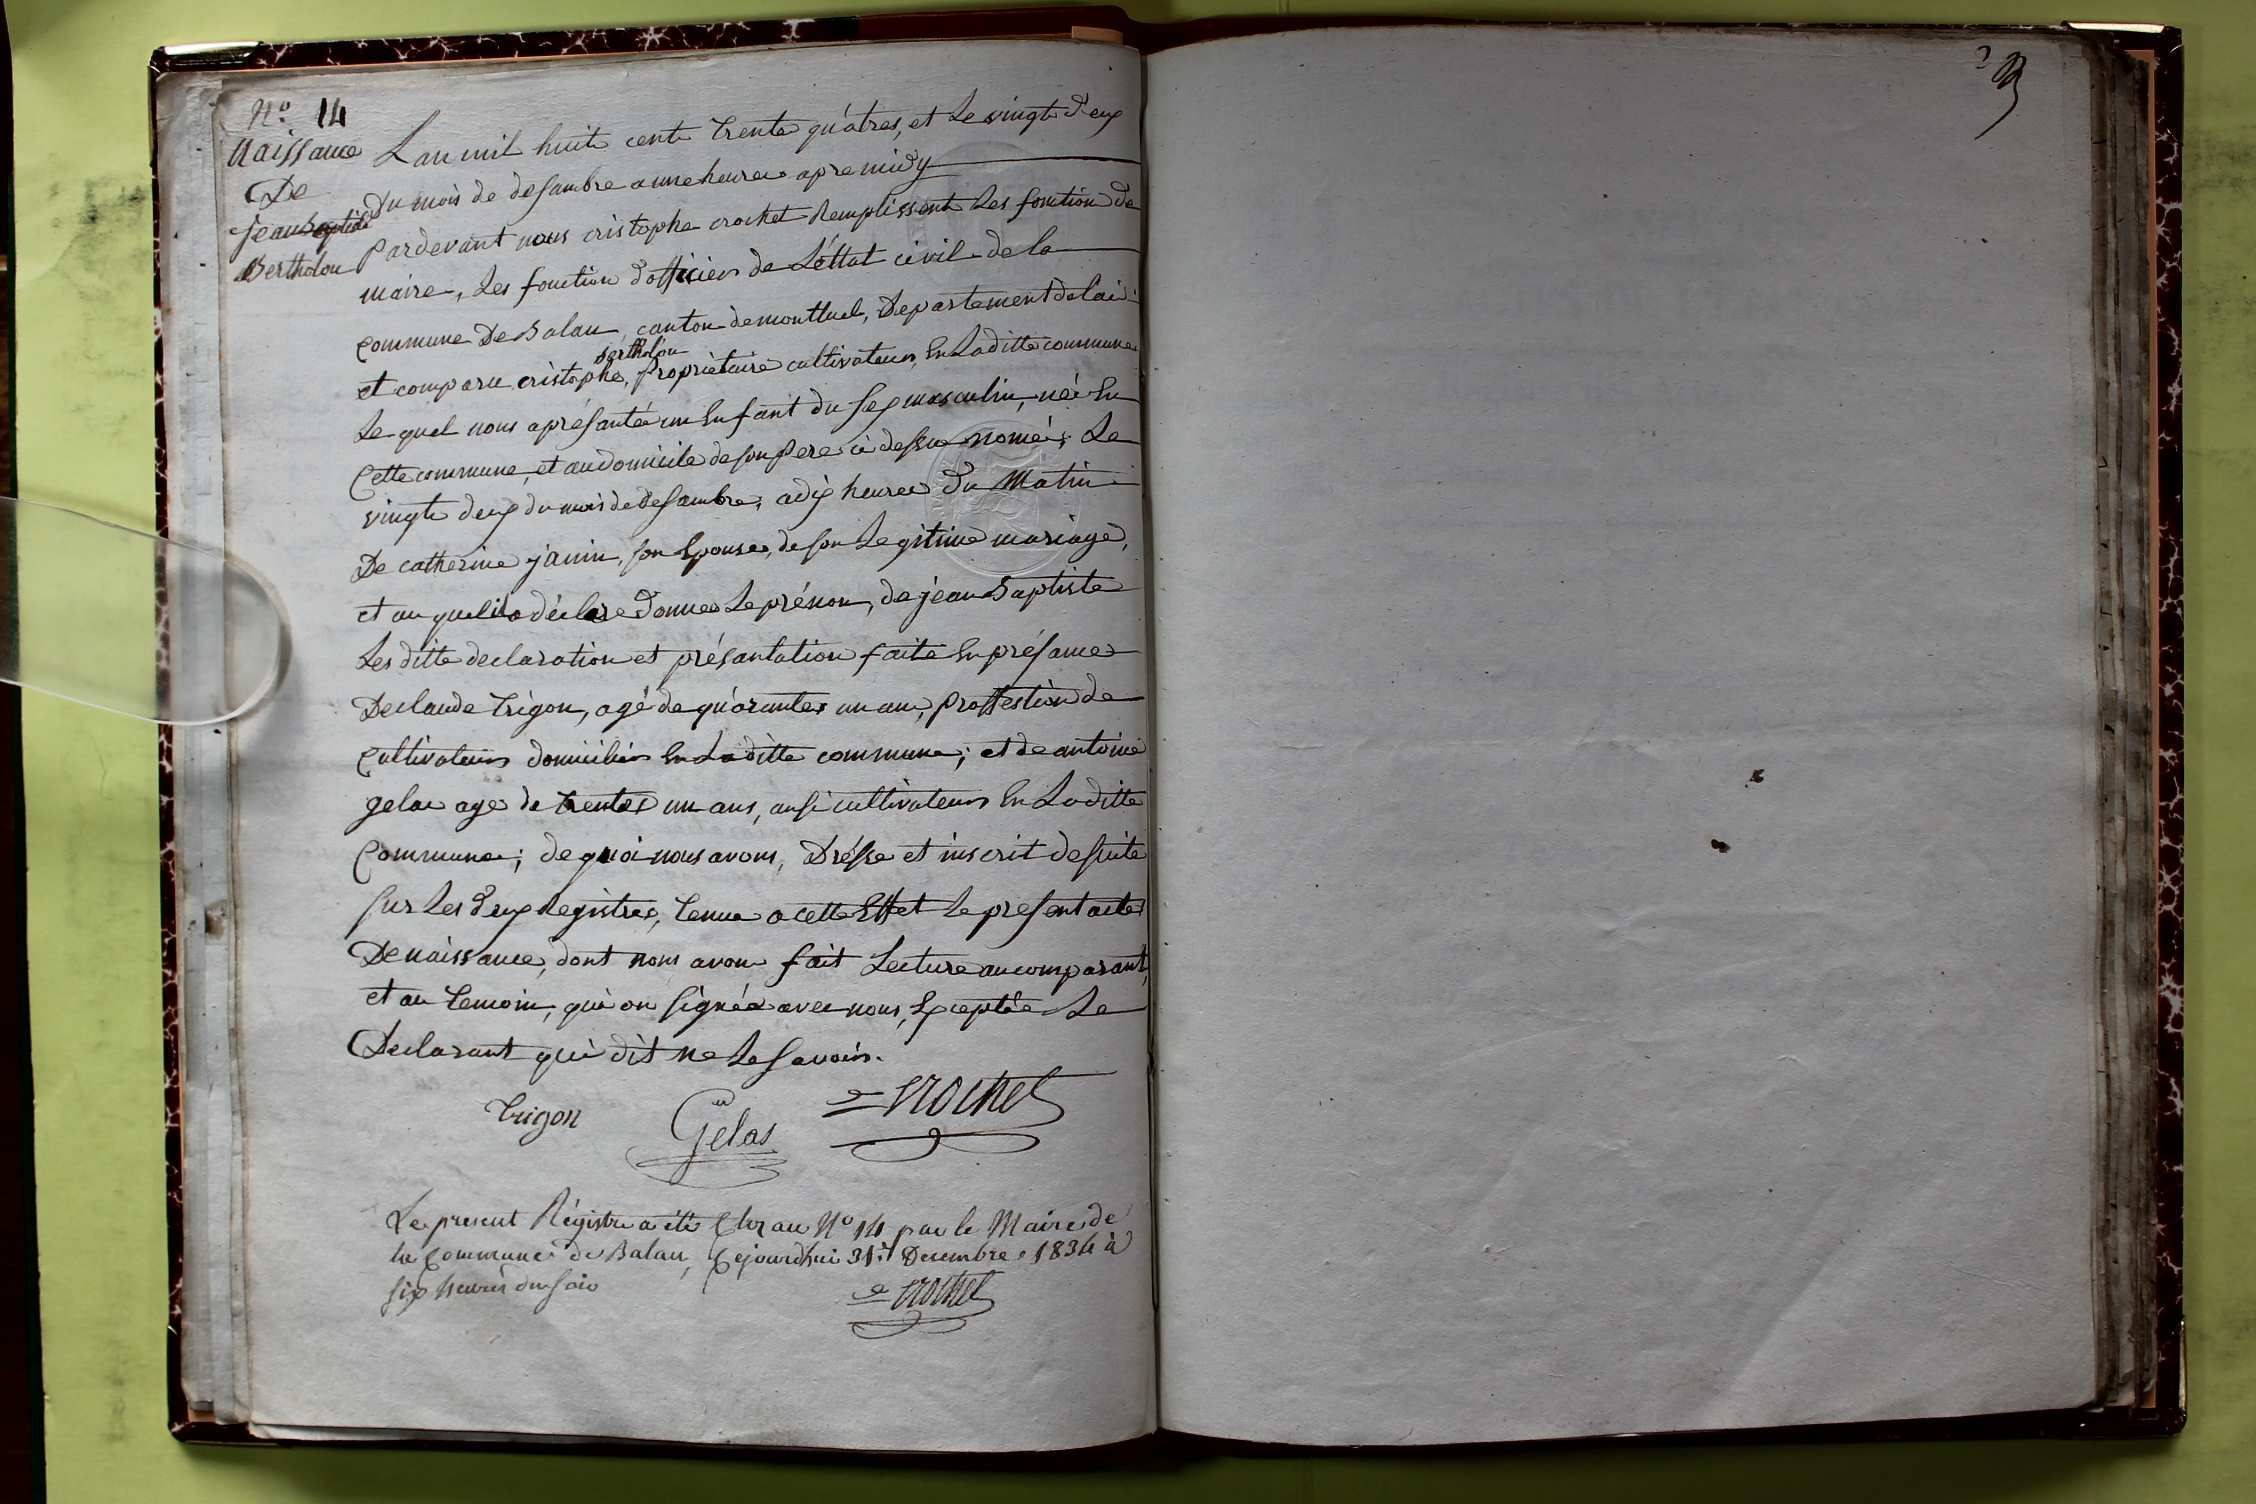 No 14
Naissance
De
jean Baptiste
Bertholon
L'an mil huit cent trente quâtres, et Le vingt deux
Du mois de desambre a une heures apre midy
Pardevant nous cristophe crochet Remplissent Les fonction de
maire, Les fonction d'officier de L'éttat civil de la
commune De Balan, canton de montluel, Departement de l'ain
bertholon
et comparu cristophe, propriétaire cultivateur, En Laditte commune
Le quel nous a présanté un Enfant du sex masculin, née En
Cette commune, et au domicile de son Pere ci dessu nomé, Le
vingt deux du mois de desambre, a dix heures du Matin
De catherine janin, son Epouse, de son Legitime mariage,
et au quel il a déclare donner Le prénon, de jean Baptiste
Les ditte declaration et présantation faite En présance
De claude trigon, agé de quârantes un an, proffestion de
cultivateur domicilier En Laditte commune; et de antoine
gelas age de trentes un ans, ausi cultivateur En Laditte
Commune; de quoi nous avons, Drésse et inscrit de suite
sur Les deux Registres, tenue a cette Effet Le present acte
De naissance, dont nous avons fait Lecture au comparant,
et au temoin, qui on signée avec nous, Exceptée Le
Declarant qui dit ne Le savoir.
trigon
Gelas
crochet
Le présent Régistre a été Clos au No 14 par le Maire de
la Commune de Balan, Cejourdhui 31 Decembre 1834 à
six heures du soir
crochet